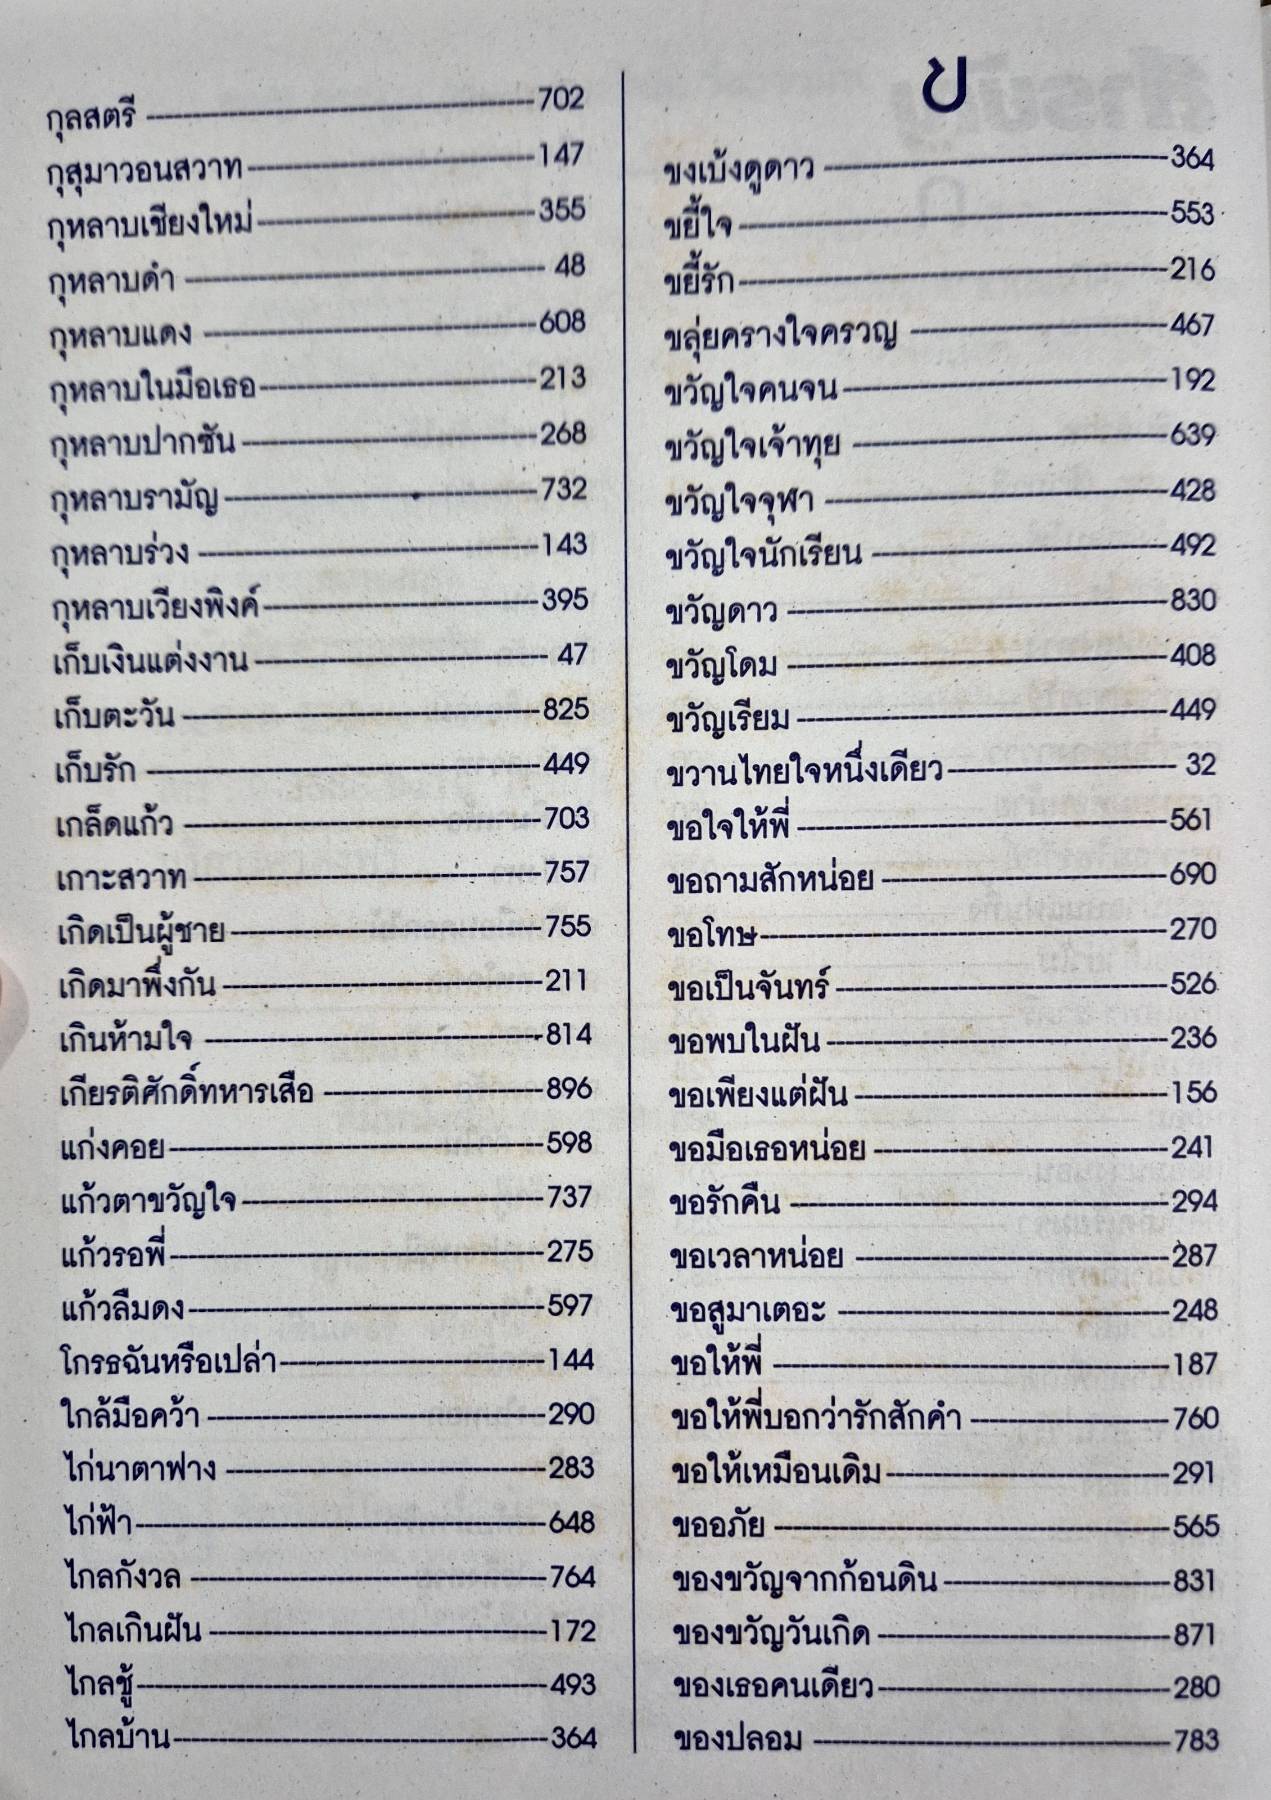 กุลสตรี 702
กุสุมาวอนสวาท 147
กุหลาบเชียงใหม่ 355
กุหลาบดำ 48
กุหลาบแดง 608
กุหลาบในมือเธอ 213
กุหลาบปากซัน 268
กุหลาบรามัญ 732
กุหลาบร่วง 143
กุหลาบเวียงพิงค์ 395
เก็บเงินแต่งงาน 47
เก็บตะวัน 825
เก็บรัก 449
เกล็ดแก้ว 703
เกาะสวาท 757
เกิดเป็นผู้ชาย 755
เกิดมาพึ่งกัน 211
เกินห้ามใจ 814
เกียรติศักดิ์ทหารเสือ 896
แก่งคอย 598
แก้วตาขวัญใจ 737
แก้วรอพี่ 275
แก้วลืมดง 597
โกรธฉันหรือเปล่า 144
ใกล้มือคว้า 290
ไก่นาตาฟาง 283
ไก่ฟ้า 648
ไกลกังวล 764
ไกลเกินฝัน 172
ไกลชู้ 493
ไกลบ้าน 364
ข
ขงเบ้งดูดาว 364
ขยี้ใจ 553
ขยี้รัก 216
ขลุ่ยครางใจครวญ 467
ขวัญใจคนจน 192
ขวัญใจเจ้าทุย 639
ขวัญใจจุฬา 428
ขวัญใจนักเรียน 492
ขวัญดาว 830
ขวัญโดม 408
ขวัญเรียม 449
ขวานไทยใจหนึ่งเดียว 32
ขอใจให้พี่ 561
ขอถามสักหน่อย 690
ขอโทษ 270
ขอเป็นจันทร์ 526
ขอพบในฝัน 236
ขอเพียงแต่ฝัน 156
ขอมือเธอหน่อย 241
ขอรักคืน 294
ขอเวลาหน่อย 287
ขอสูมาเตอะ 248
ขอให้พี่ 187
ขอให้พี่บอกว่ารักสักคำ 760
ขอให้เหมือนเดิม 291
ขออภัย 565
ของขวัญจากก้อนดิน 831
ของขวัญวันเกิด 871
ของเธอคนเดียว 280
ของปลอม 783